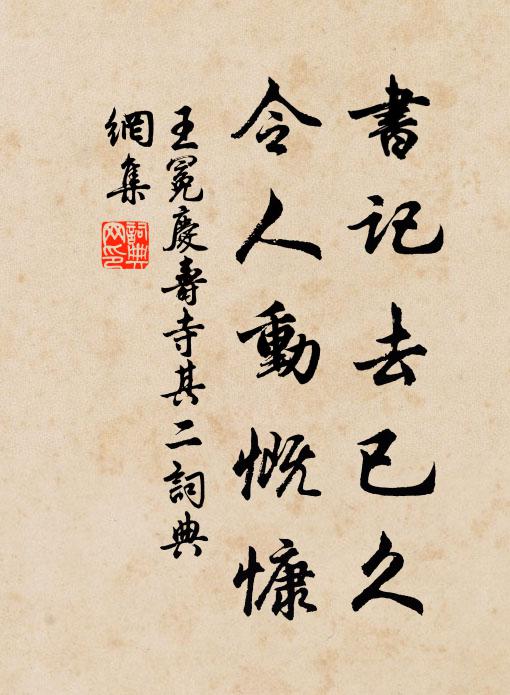 書記去已久
令人動慨慷
王冕慶壽寺其二詞典
網集
詞典
网印